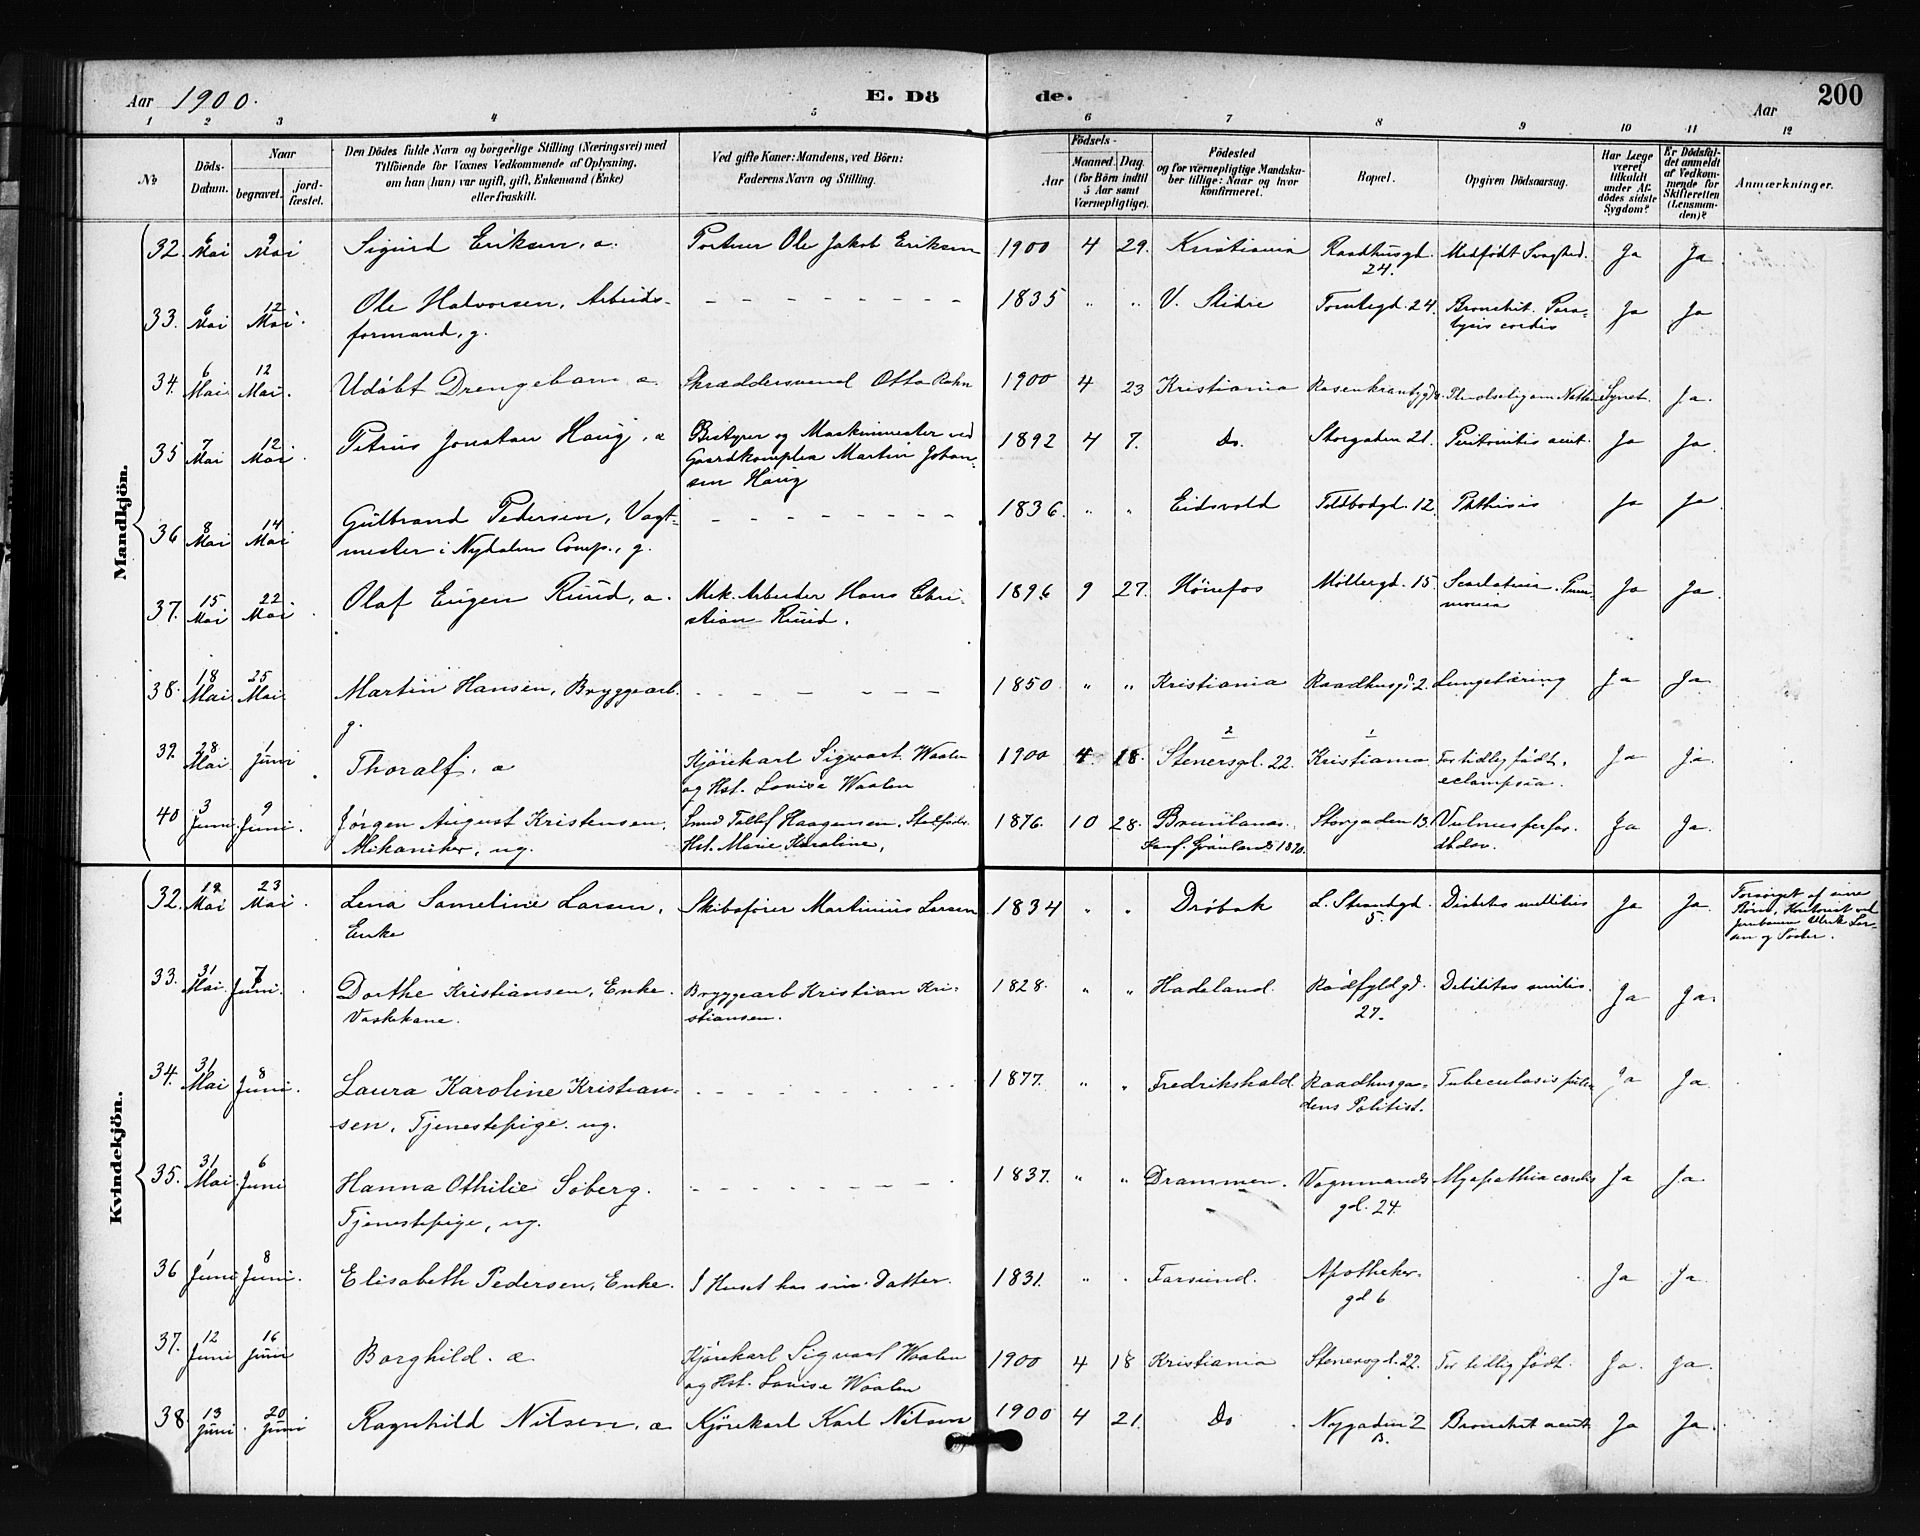 Aar 1900.
E. Dö
de.
Aar
200
1 2 3 4 5 6 7 8 9 10 11 12
No
Döds-
Datum.
Naar
begravet.
jord-
fæstet.
Den Dödes fulde Navn og borgerlige Stilling (Næringsvei) med
Tilföiende for Voxnes Vedkommende af Oplysning,
om han (hun) var ugift, gift, Enkemand (Enke)
eller fraskilt.
Ved gifte Koner: Mandens, ved Börn:
Faderens Navn og Stilling.
Födsels-
Aar
Maaned. Dag.
(for Börn indtil
5 Aar samt
Værnepligtige).
Födested
og for værnepligtige Mandska-
ber tillige: Naar og hvor
konfirmeret.
Bopæl.
Opgiven Dödsaarsag.
Har Læge
været
tilkaldt
under Af-
dödes sidste
Sygdom?
Er Dödsfal-
det anmeldt
af Vedkom-
mende for
Skifteretten
(Lensman-
den)?
Anmærkninger.
Mandkjön.
32. 6 Mai 9 Mai Sigurd Eriksen, a. Portner Ole Jakob Eriksen 1900 4 29. Kristiania Raadhusgd. 24. Medfødt Svaghed. Ja Ja
33. 6 Mai 12 Mai. Ole Halvorsen, Arbeids-
formand, g. 1835 " " V. Slidre Tomtegd. 24. Bronchit. Para-
lysis cordis Ja Ja
34. 6 Mai 12 Mai. Udøbt Drengebarn a. Skræddersvend Otto Rahn 1900 4 23 Kristiania Synet. Ja.
35 7 Mai 12 Mai. Petrus Jonatan Haug, a Bestyrer og Maskinmester ved
Gaardkomplex Martin Johan-
sen Haug 1892 4 7. Do. Storgaden 21. Peritonitis acut. Ja Ja.
36 8 Mai 14 Mai Gulbrand Pedersen, Vagt-
mester i Nydalens Comp., g. 1836. " " Eidsvold Toldbodgd. 12. Phthisis Ja Ja
37. 15 Mai 22 Mai. Olaf Eugen Ruud, a. Mek. Arbeider Hans Chri-
stian Ruud. 1896 9 27. Hönefos Møllergd. 15 Scarlatina. Pneu-
monia Ja Ja.
38. 18 Mai 25 Mai. Martin Hansen, Bryggearb.
g. 1850. " " Kristiania Raadhusgd 2. Lungetæring Ja Ja.
39. 28 Mai 1 Juni. Thoralf, a Kjørekarl Sigvart Waalen
og Hst. Lovise Waalen 1900 4 18. 2 Stenersgd. 22. 1 Kristiania For tidlig født,
eclampsia. Ja Ja.
40 3 Juni. 9 Juni. Jørgen August Kristensen,
Mekaniker, ug. Smed Tollef Haagensen,
Hst. Marie Karoline, 1876. 10 28. Brunlanæs.
Konf. Grønland Storgaden 13. Vulnus perfor. Ja Ja.
Kvindekjön.
32. 19 Mai 23 Mai. Lena Sameline Larsen,
Enke Skibsfører Martinius Larsen 1834 " " Drøbak L. Strandgd. 5. Diabetes mellitus Ja Ja. Forsørget af sine
Børn, Kontorist ved
Jernbanen Ulrik Lar-
sen og Søster.
33. 31 Mai. 7 Juni. Dorthe Kristiansen, Enke.
Vaskekone. Bryggearb Kristian Kri-
stiansen. 1828. " " Hadeland. Rødfyldgd. 27. Debilitas senilis. Ja Ja.
34. 31 Mai 8 Juni. Laura Karoline Kristian-
sen, Tjenestepige. ug. 1877. " " Fredrikshald Raadhusga-
dens Politist. Ja Ja.
35. 31 Mai 6 Juni Hanna Othilie Søberg.
Tjenestepige, ug. 1837. " " Drammen. Vognmands
gd. 24. Myopathia cordis Ja Ja.
36 1 Juni 8 Juni. Elisabeth Pedersen, Enke. I Huset hos sin Datter. 1831. " " Farsund. Apotheker-
gd 6 Ja Ja.
37. 12 Juni 16 Juni Borghild. a. Kjørekarl Sigvart Waalen
og Hst. Lovise Waalen 1900 4 18 Kristiania Stenersgd. 22. For tidlig født. Ja. Ja.
38. 13 Juni. 20 Juni Ragnhild Nilsen, a Kjørekarl Karl Nilsen 1900 4 21. Do Nygaden 2
B. Bronchit acut Ja Ja.